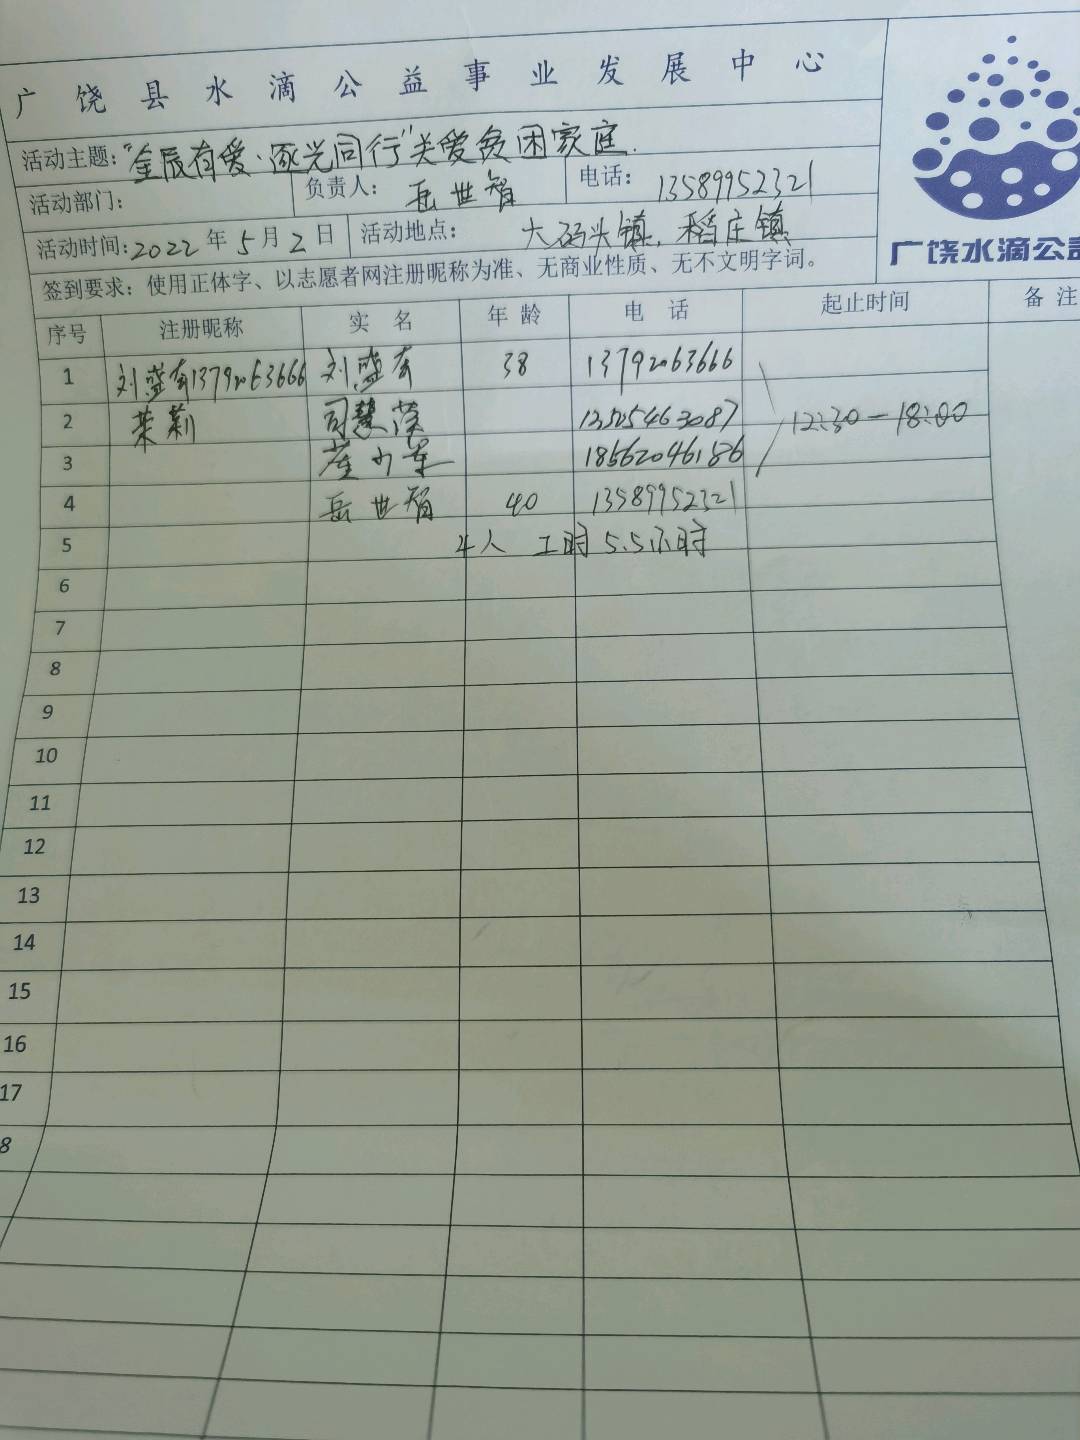 广饶县水滴公益事业发展中心
活动主题:“金辰有爱·逐光同行”关爱贫困家庭.
活动部门: 负责人: 岳世智 电话: 13589952321
活动时间:2022年5月2日 活动地点: 大码头镇, 稻庄镇
签到要求: 使用正体字、以志愿者网注册昵称为准、无商业性质、无不文明字词。
广饶水滴公益
序号 注册昵称 实 名 年 龄 电 话 起止时间 备 注
1 刘盛有13792063666 刘盛有 38 13792063666
2 茉莉 司慧萍 13505463087 12:30-18:00
3 崔小军 18562046186
4 岳世智 40 13589952321
5 4人 工时 5.5小时
6
7
8
9
10
11
12
13
14
15
16
17
8